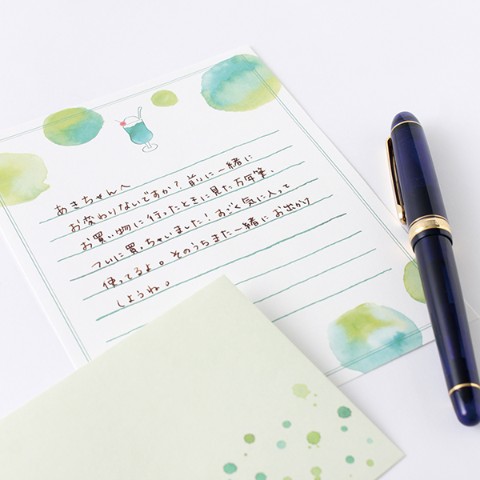 あきちゃんへ
お変わりないですか？前に一緒に
お買い物に行ったときに見た万年筆、
ついに買っちゃいました！すごく気に入って
使ってるよ。そのうちまた一緒にお出かけ
しようね。